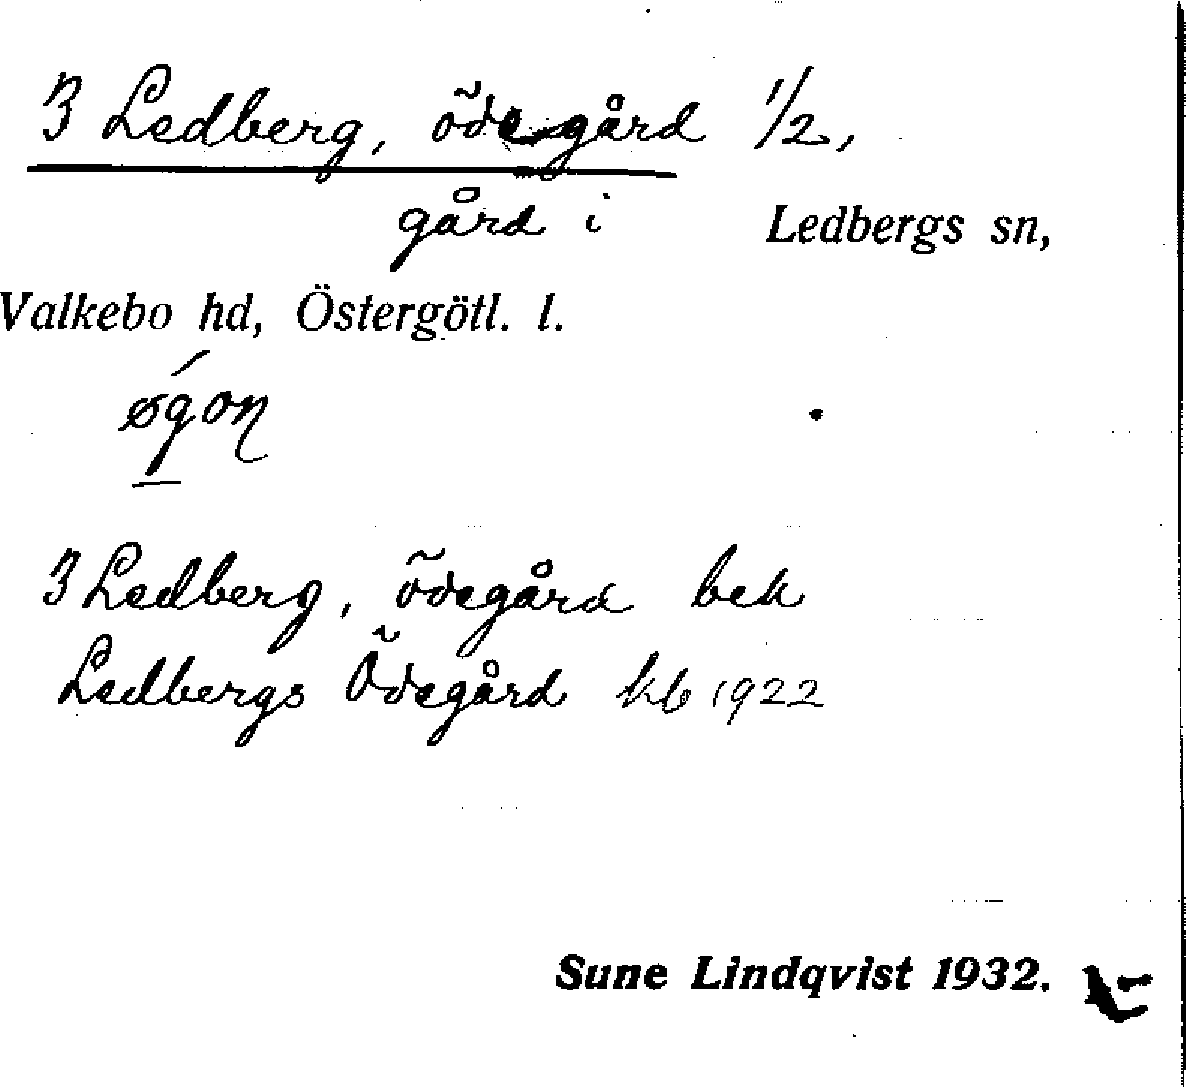 3 Ledberg, ödegård 1/2,
gård i Ledbergs sn,
Valkebo hd, Östergötl. l.
3 Ledberg, ödegård bek
Ledbergs Ödegård kb 1922
Sune Lindqvist 1932.